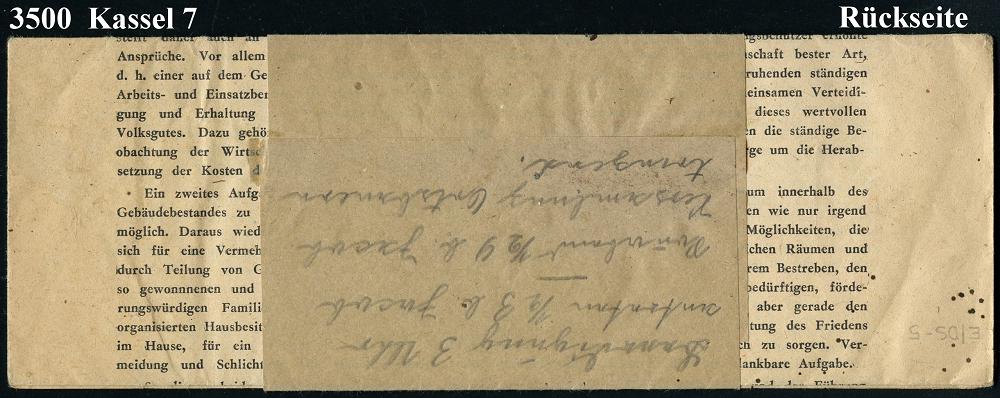 3500 Kassel 7
Rückseite
stellt daher auch an
Ansprüche. Vor allem
d. h. einer auf dem Ge
Arbeits- und Einsatzber
gung und Erhaltung
Volksgutes. Dazu gehö
obachtung der Wirtsc
setzung der Kosten d
Ein zweites Aufg
Gebäudebestandes zu
möglich. Daraus wied
sich für eine Vermeh
durch Teilung von G
so gewonnnenen und
rungswürdigen Famili
organisierten Hausbesit
im Hause, für ein
meidung und Schlicht
gsbeschützer erhöhte
schaft bester Art,
ruhenden ständigen
einsamen Verteidi-
dieses wertvollen
en die ständige Be-
rge um die Herab-
um innerhalb des
en wie nur irgend
Möglichkeiten, die
ichen Räumen und
rem Bestreben, den
bedürftigen, förde-
aber gerade den
tung des Friedens
h zu sorgen. Ver-
ankbare Aufgabe.
und der Führung
3 Uhr
antreten ½ 3 b. Jacob
½ 9 b. Jacob
Versammlung Ortsbauern
dringend.
E/DS-5